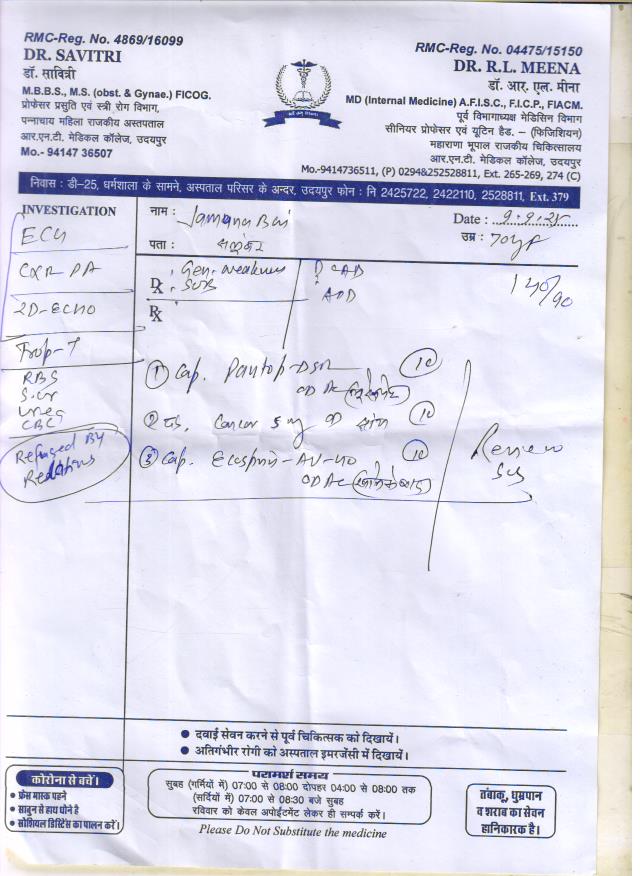 RMC-Reg. No. 4869/16099
DR. SAVITRI
डॉ. सावित्री
M.B.B.S., M.S. (obst. & Gynae.) FICOG.
प्रोफेसर प्रसुति एवं स्त्री रोग विभाग,
पन्नाधाय महिला राजकीय अस्तपताल
आर.एन.टी. मेडिकल कॉलेज, उदयपुर
Mo.- 94147 36507
RMC-Reg. No. 04475/15150
DR. R.L. MEENA
डॉ. आर. एल. मीना
MD (Internal Medicine) A.F.I.S.C., F.I.C.P., FIACM.
पूर्व विभागाध्यक्ष मेडिसिन विभाग
सीनियर प्रोफेसर एवं यूटिन हैड. – (फिजिशियन)
महाराणा भूपाल राजकीय चिकित्सालय
आर.एन.टी. मेडिकल कॉलेज, उदयपुर
Mo.-9414736511, (P) 0294&252528811, Ext. 265-269, 274 (C)
निवास : डी-25, धर्मशाला के सामने, अस्पताल परिसर के अन्दर, उदयपुर फोन : नि 2425722, 2422110, 2528811, Ext. 379
INVESTIGATION
ECG
CXR PA
2D-ECHO
Trop-T
RBS
S.cr
Urea
CBC
Refused By
Relatives
नाम : Jamana Bai
Date : 9.9.25
पता : सलूंबर
उम्र : 70yr
Gen. weakness
SOB
Dx
Rx
CAD
140/90
① Cap. Pantop-DSR 10
OD AC
② Concor 5 mg OD 10
③ Cap. Ecosprin-AV-40 10
OD
Review
SOS
दवाई सेवन करने से पूर्व चिकित्सक को दिखायें।
अतिगंभीर रोगी को अस्पताल इमरजेंसी में दिखायें।
कोरोना से बचें।
फ्रेस मास्क पहने
साबुन से हाथ धोने है
सोशियल डिस्टिेंस का पालन करें।
परामर्श समय
सुबह (गर्मियों में) 07:00 से 08:00 दोपहर 04:00 से 08:00 तक
(सर्दियों में) 07:00 से 08:30 बजे सुबह
रविवार को केवल अपोईंटमेंट लेकर ही सम्पर्क करें।
Please Do Not Substitute the medicine
तंबाकू, धुम्रपान
व शराब का सेवन
हानिकारक है।